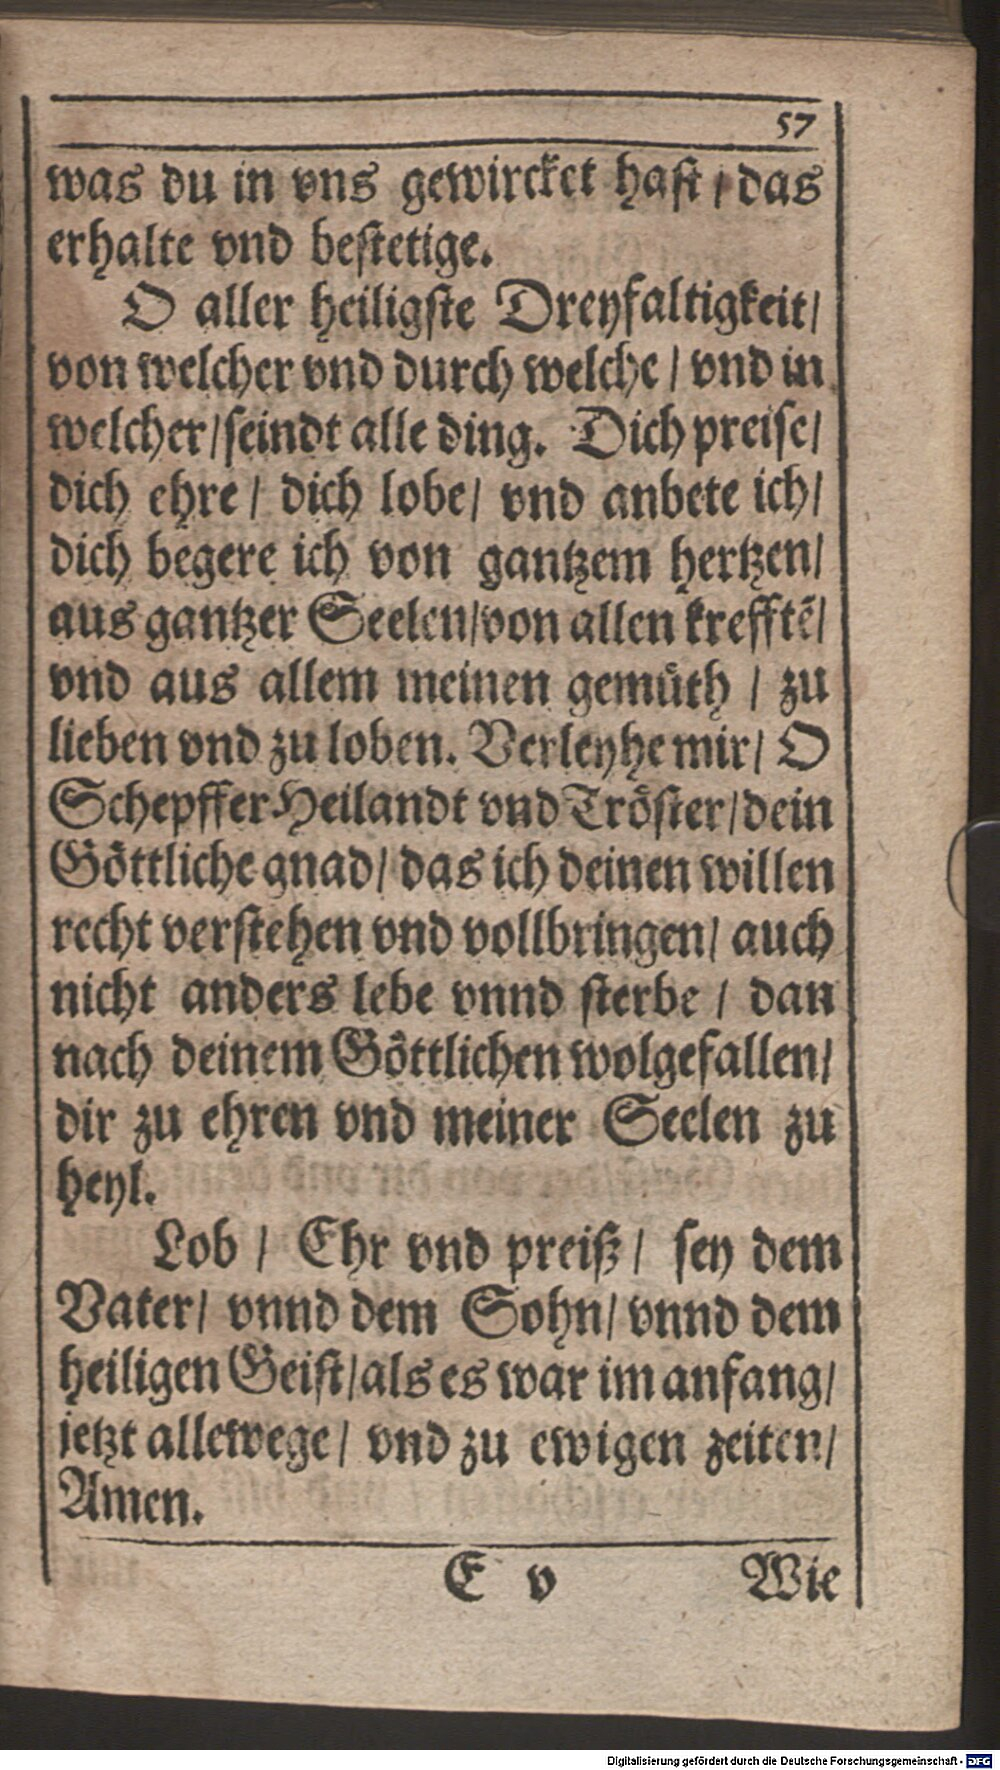 57
was du in vns gewircket haſt / das
erhalte vnd beſtetige.
O aller heiligſte Dreyfaltigkeit/
von welcher vnd durch welche / vnd in
welcher/ſeindt alle ding. Dich preiſe/
dich ehre / dich lobe/ vnd anbete ich/
dich begere ich von gantzem hertzen/
aus gantzer Seelen/von allen krefftē/
vnd aus allem meinen gemuͤth / zu
lieben vnd zu loben. Verleyhe mir/ O
Schepffer Heilandt vnd Troͤſter/dein
Goͤttliche gnad/ das ich deinen willen
recht verſtehen vnd vollbringen/ auch
nicht anders lebe vnnd ſterbe / dan
nach deinem Goͤttlichen wolgefallen/
dir zu ehren vnd meiner Seelen zu
heyl.
Lob / Ehr vnd preiß/ ſey dem
Vater/ vnnd dem Sohn/ vnnd dem
heiligen Geiſt/als es war im anfang/
jetzt allewege/ vnd zu ewigen zeiten/
Amen.
E v Wie
Digitalisierung gefördert durch die Deutsche Forschungsgemeinschaft - DFG